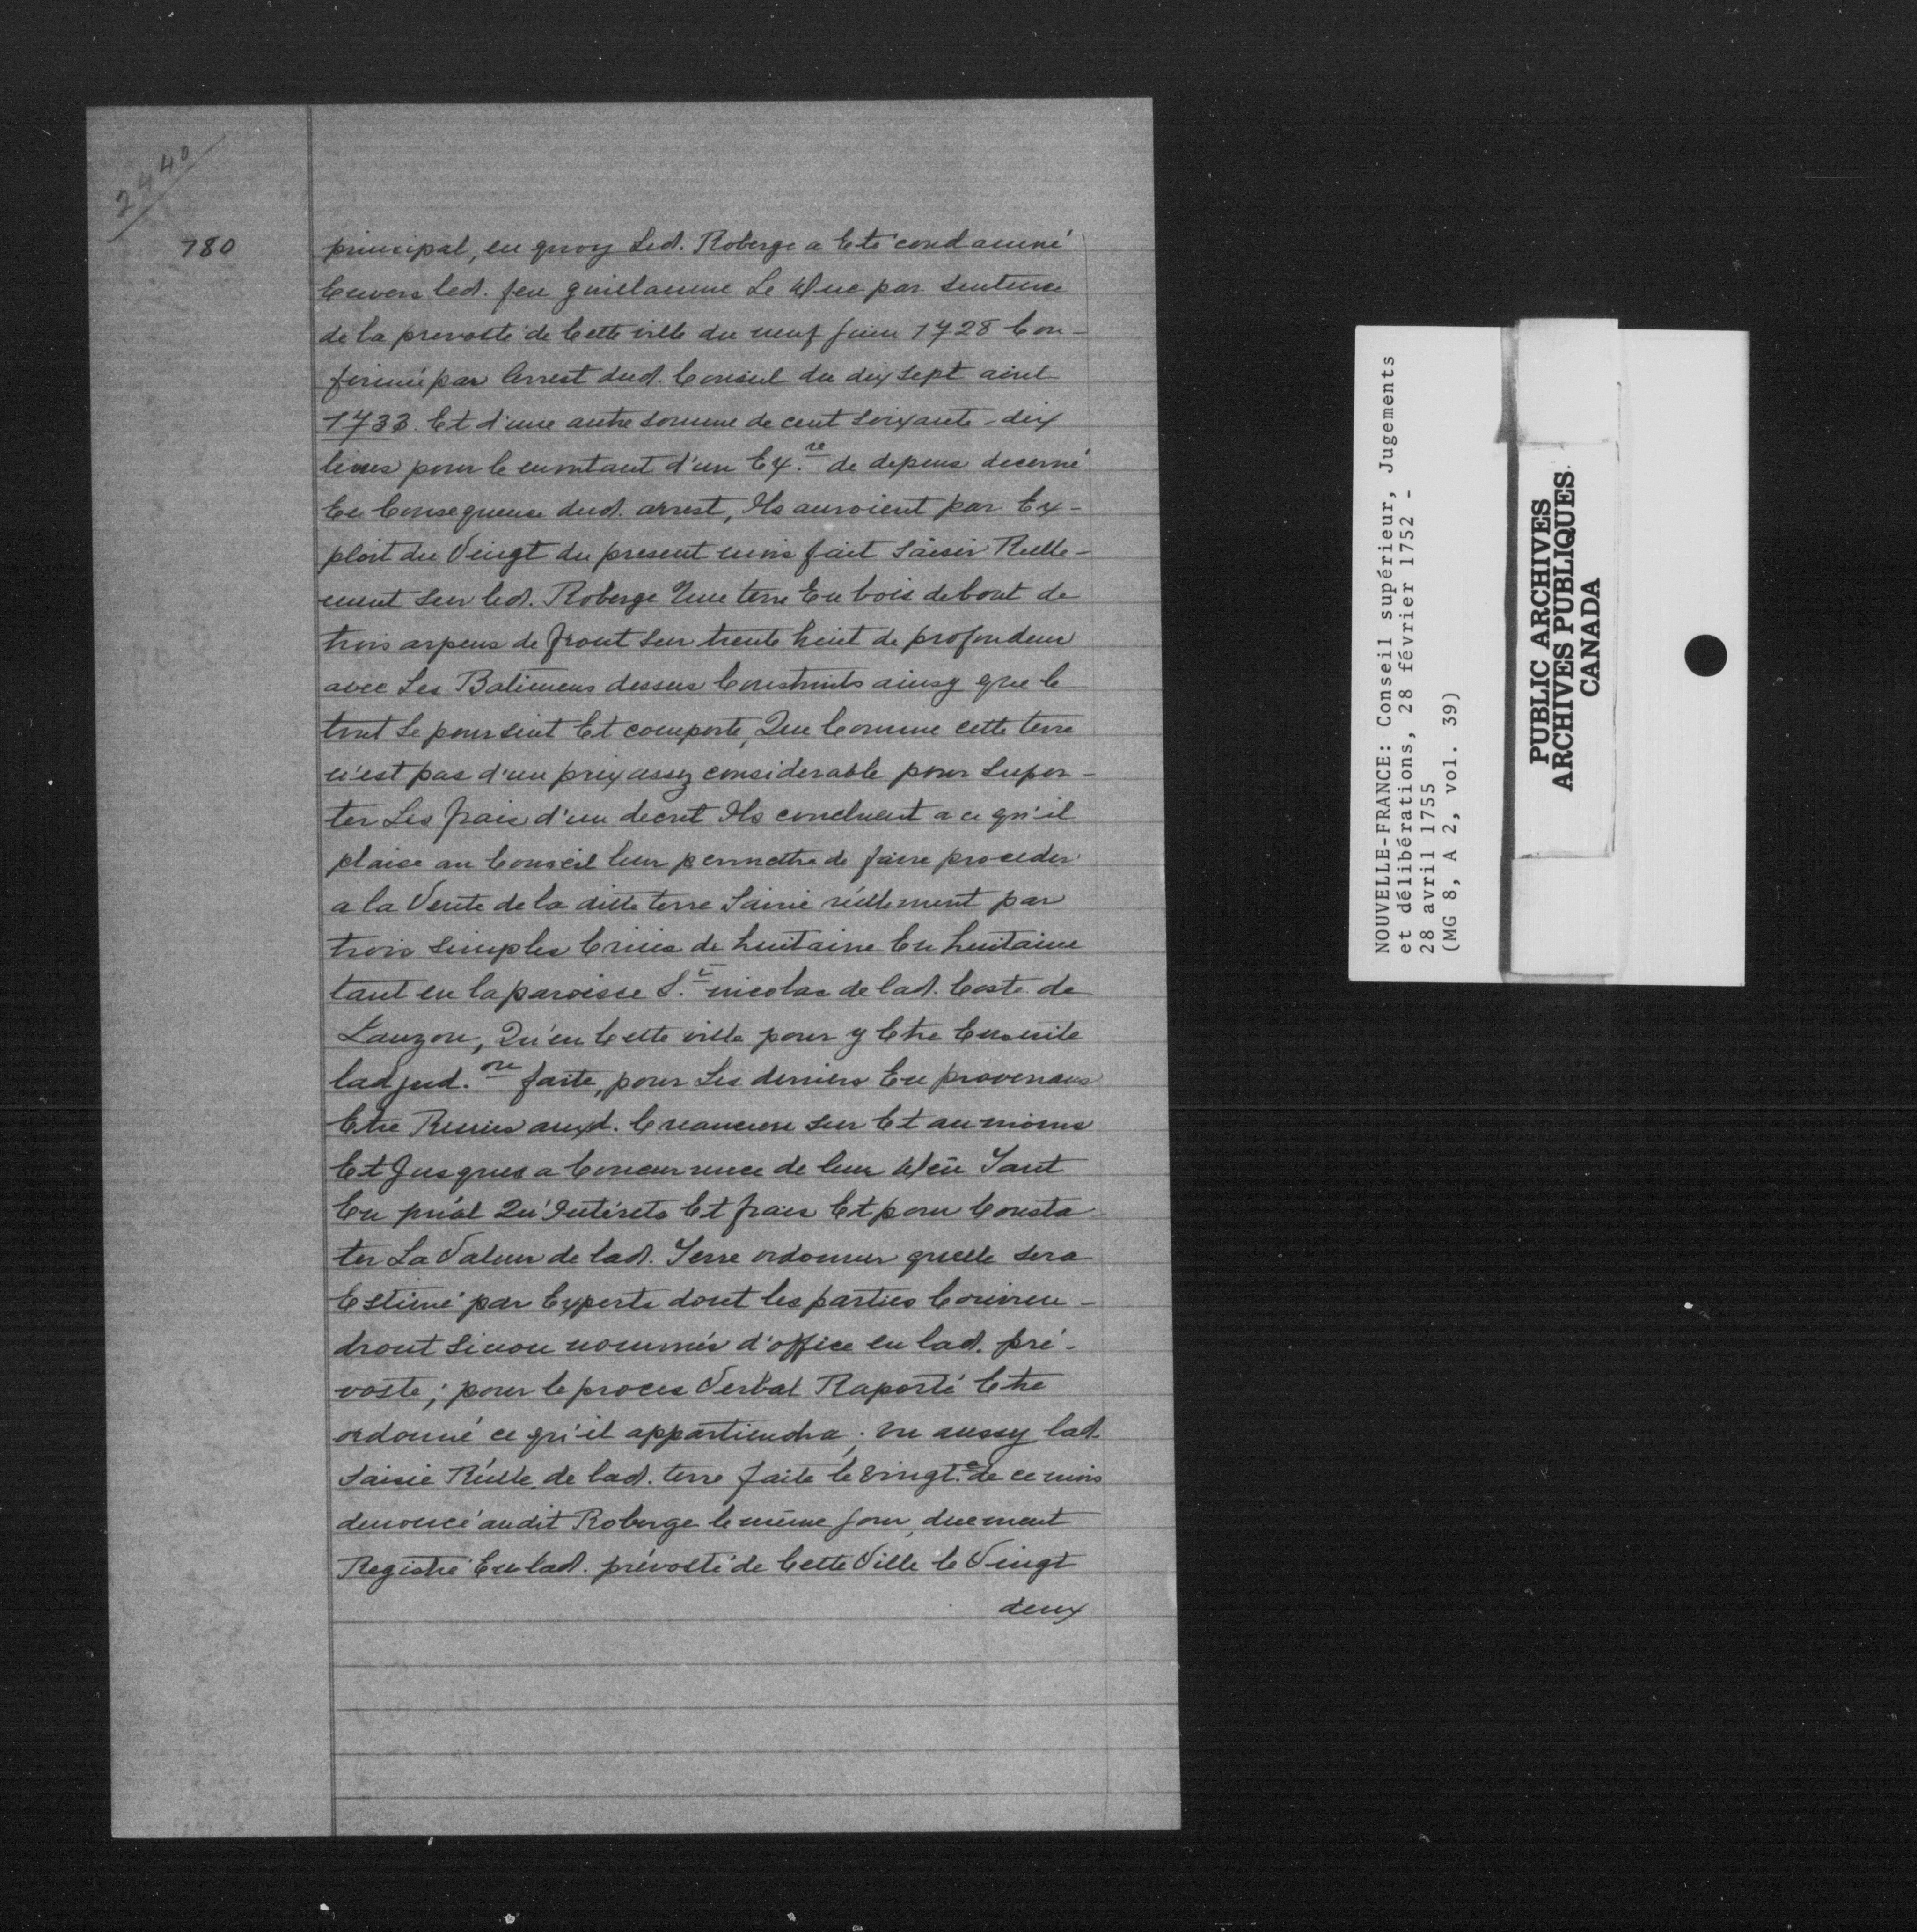 2440
780
principal, en quoy Led. Roberge a Eté condamné
Envers led. feu guillaume Le Duc par sentence
de la prevosté de Cette ville du neuf juin 1728 Con-
firmé par l'arrest dud. Conseil du dix sept avril
1733. Et d'une autre somme de cent soixante-dix
livres pour le montant d'un Ex.re de depens decerné
En Consequence dud. arrest, Ils auroient par Ex-
ploit du Vingt du present mois fait saisir Réelle-
ment sur led. Roberge Une terre En bois debout de
trois arpens de front sur trente huit de profondeur
avec Les Batimens dessus Construits ainsy que le
tout Se poursuit Et comporte, Que Comme cette terre
n'est pas d'un prix assez considerable pour supor-
ter Les frais d'un decret Ils concluent a ce qu'il
plaise au Conseil leur permettre de faire proceder
a la Vente de la ditte terre Saisie réellement par
trois simples Criées de huitaine En huitaine
tant en la paroisse S.t nicolas de lad. Coste de
Lauzon, Qu'en Cette ville pour y Etre Ensuite
ladjud.on faite, pour Les deniers En provenans
Etre Remis auxd. Creanciers sur Et au moins
Et Jusques a Concurrence de leur dêu Tant
En prâl Qu'Intérets Et frais Et pour Consta-
ter La Valeur de lad. Terre ordonner quelle sera
Estimé par Experts dont les parties Convien-
dront Sinon nommés d'office en lad. pré-
vosté; pour le proces Verbal Raporté Etre
ordonné ce qu'il appartiendra; vu aussy lad.
saisie Réelle de lad. terre faite le vingt.e de ce mois
denoncé audit Roberge le même jour, duement
Registré En lad. prévosté de Cette Ville le Vingt
deux
NOUVELLE-FRANCE: Conseil supérieur, Jugements
et délibérations, 28 février 1752 -
28 avril 1755
(MG 8, A 2, vol. 39)
PUBLIC ARCHIVES
ARCHIVES PUBLIQUES
CANADA